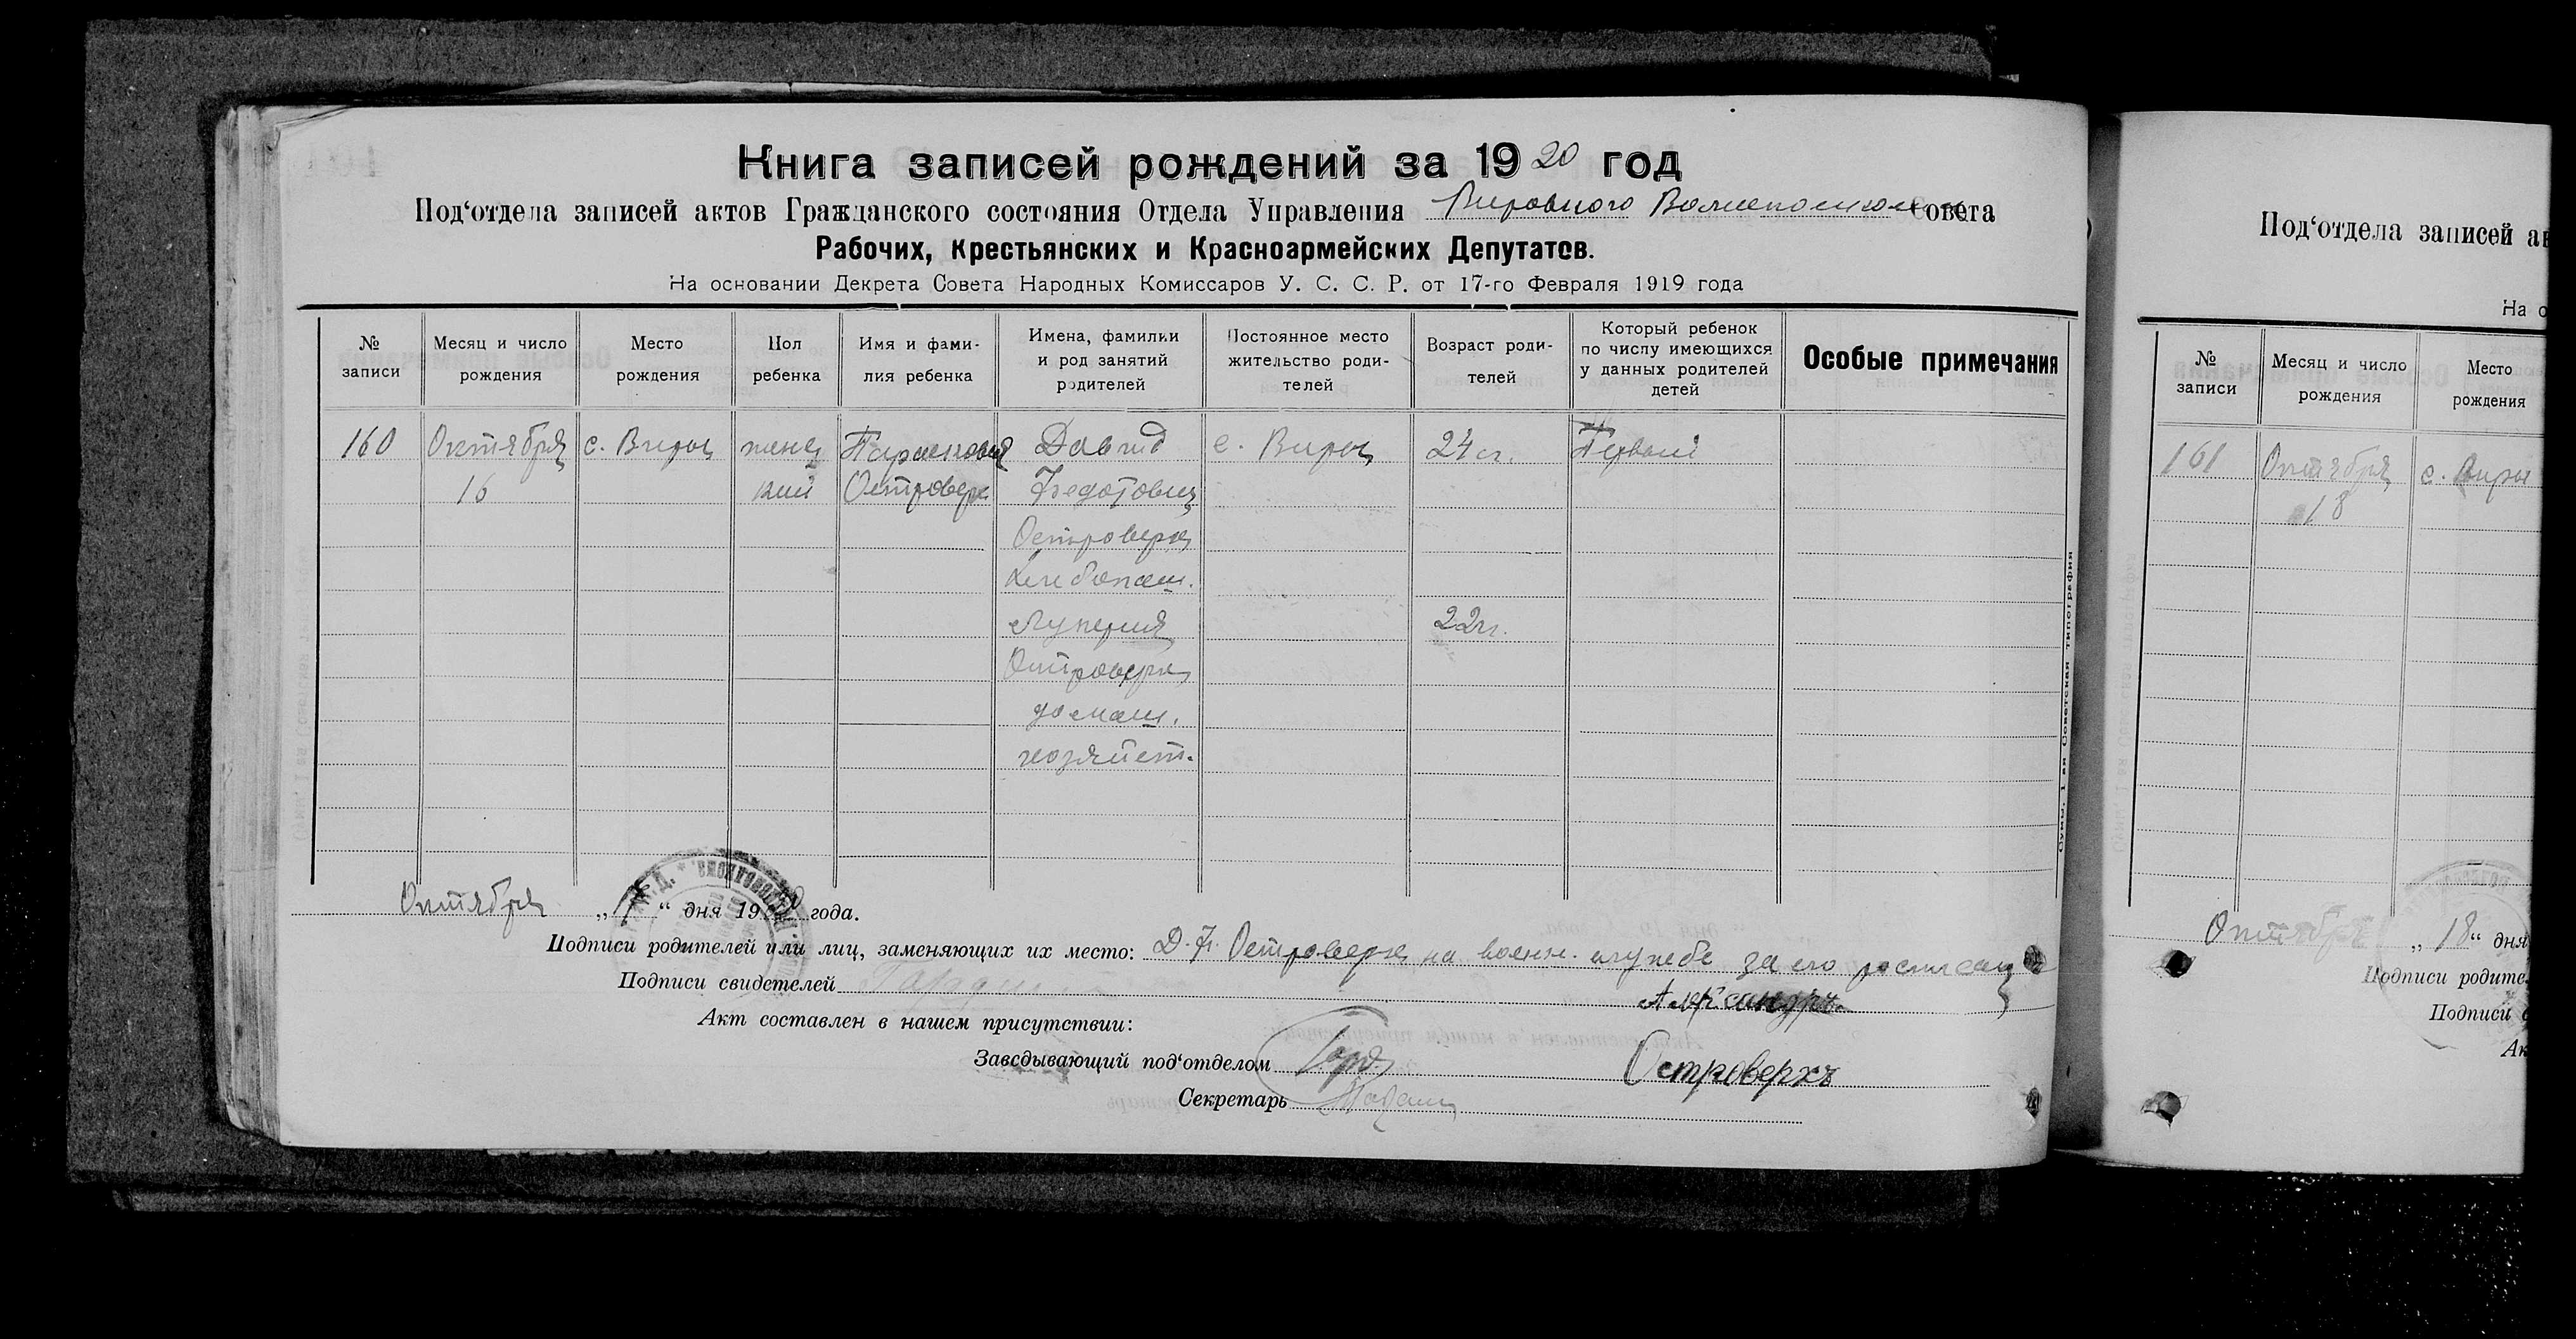 Книга записей рождений за 1920 год
Под‘отдела записей актов Гражданского состояния Отдела Управления Вировного Волисполкома Совета
Рабочих, Крестьянских и Красноармейских Депутатов.
На основании Декрета Совета Народных Комиссаров У. С. С. Р. от 17-го Февраля 1919 года
№ записи
Месяц и число рождения
Место рождения
Пол ребенка
Имя и фами-
лия ребенка
Имена, фамилии
и род занятий
родителей
Постоянное место
жительство роди-
телей
Возраст роди-
телей
Который ребенок
по числу имеющихся
у данных родителей
детей
Особые примечания
160
Октября
16
с. Виры
женс
кий
Парасковия
Островерх
Давид
Федотович
Островерх
хлебопаш.
Лукерия
Островерх
домаш.
хозяйст.
с. Виры
24 г.
22 г.
Первый
Сумы. 1-ая Советская типография
Октября „17“ дня 1920 года.
Подписи родителей или лиц, заменяющих их место: Д. Ф. Островерх на военн. службе за его росписался
Подписи свидетелей Александръ
Акт составлен в нашем присутствии:
Заведывающий под‘отделом
Островерхъ
Секретарь
Под‘отдела записей ак
На о
№ записи
Месяц и число рождения
Место рождения
161
Октября
18
с. Виры
Октября „18“ дня
Подписи родите
Подписи с
Ак